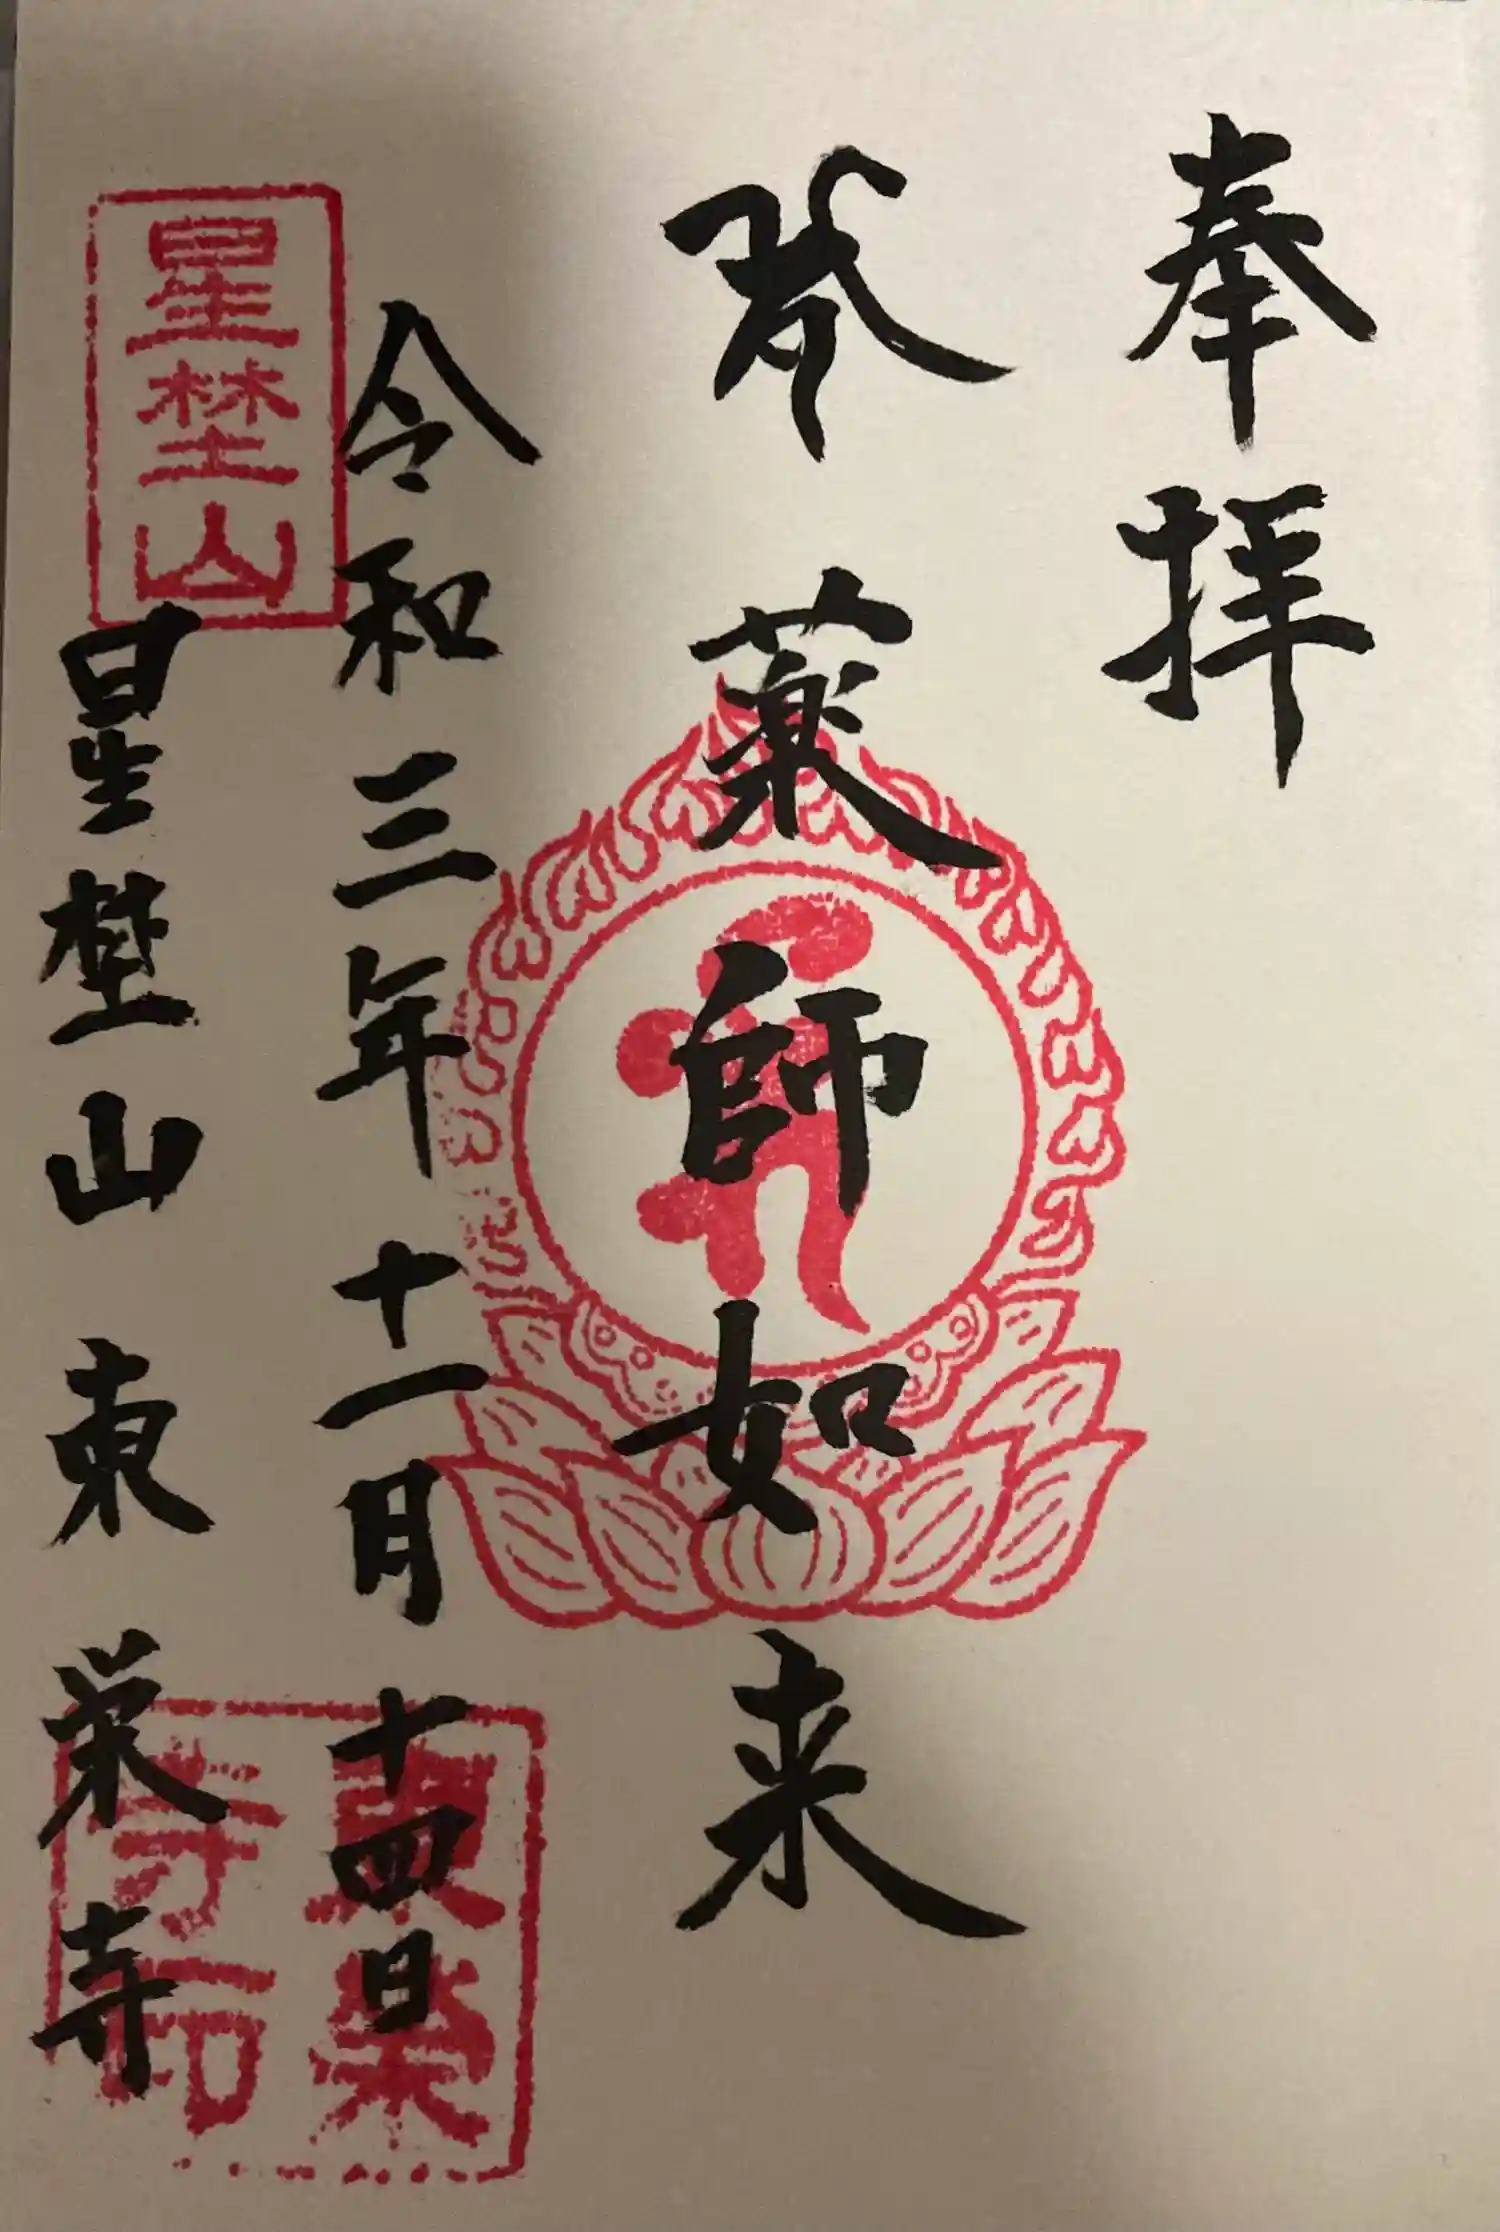 奉拝
薬師如来
令和三年十一月十四日
星埜山東栄寺
星埜山
東榮寺印